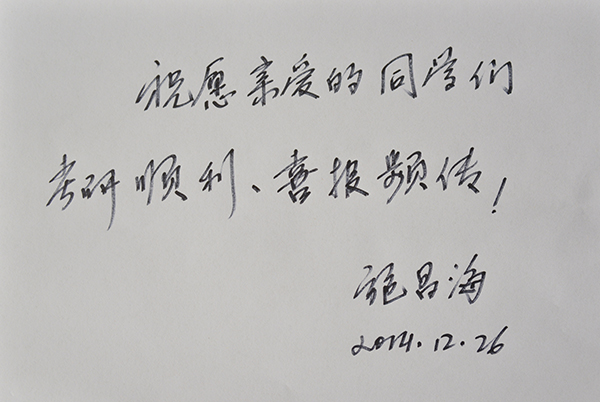 祝愿亲爱的同学们
考研顺利、喜报频传！
施昌海
2014.12.26